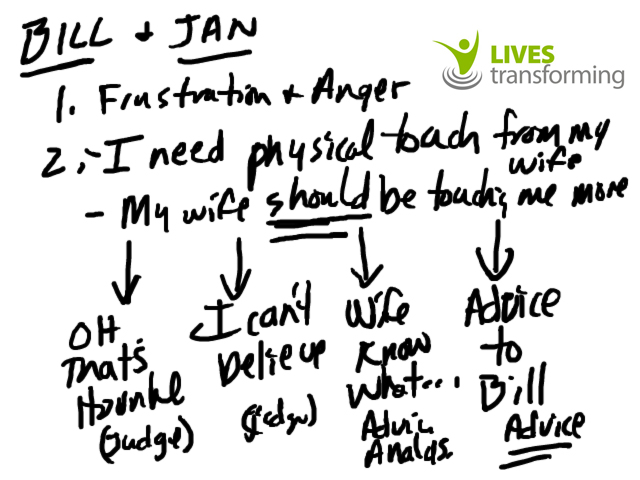 BILL & JAN
LIVES
transforming
1. Frustration & Anger
2. - I need physical touch from my
wife
- My wife should be touching me more
OH
That's
Horrible
(Judge)
I can't
Believe
(Judge)
Wife
Know
What...
Advice
Analys.
Advice
to
Bill
Advice